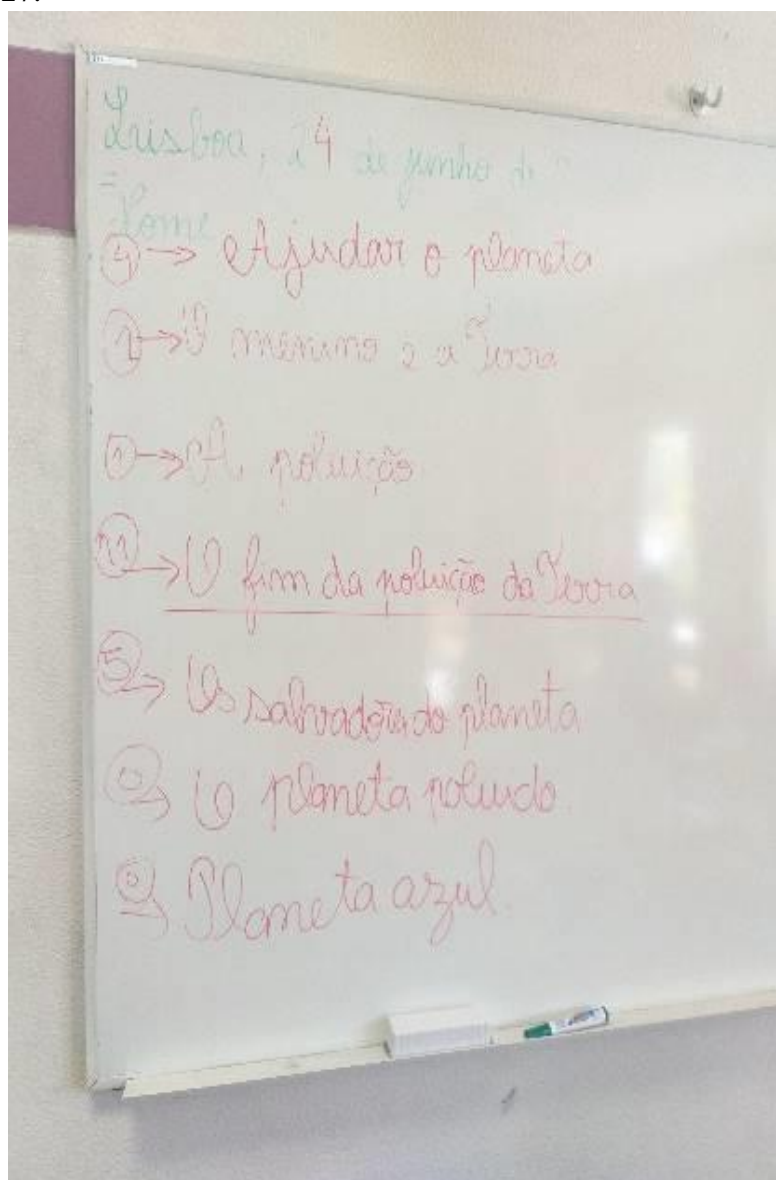 Lisboa, 4 de junho de
Nome
4 → Ajudar o planeta
1 → O menino e a Terra
1 → A poluição
11 → O fim da poluição da Terra
5 → Os salvadores do planeta
0 → O planeta poluido
0 → Planeta azul.